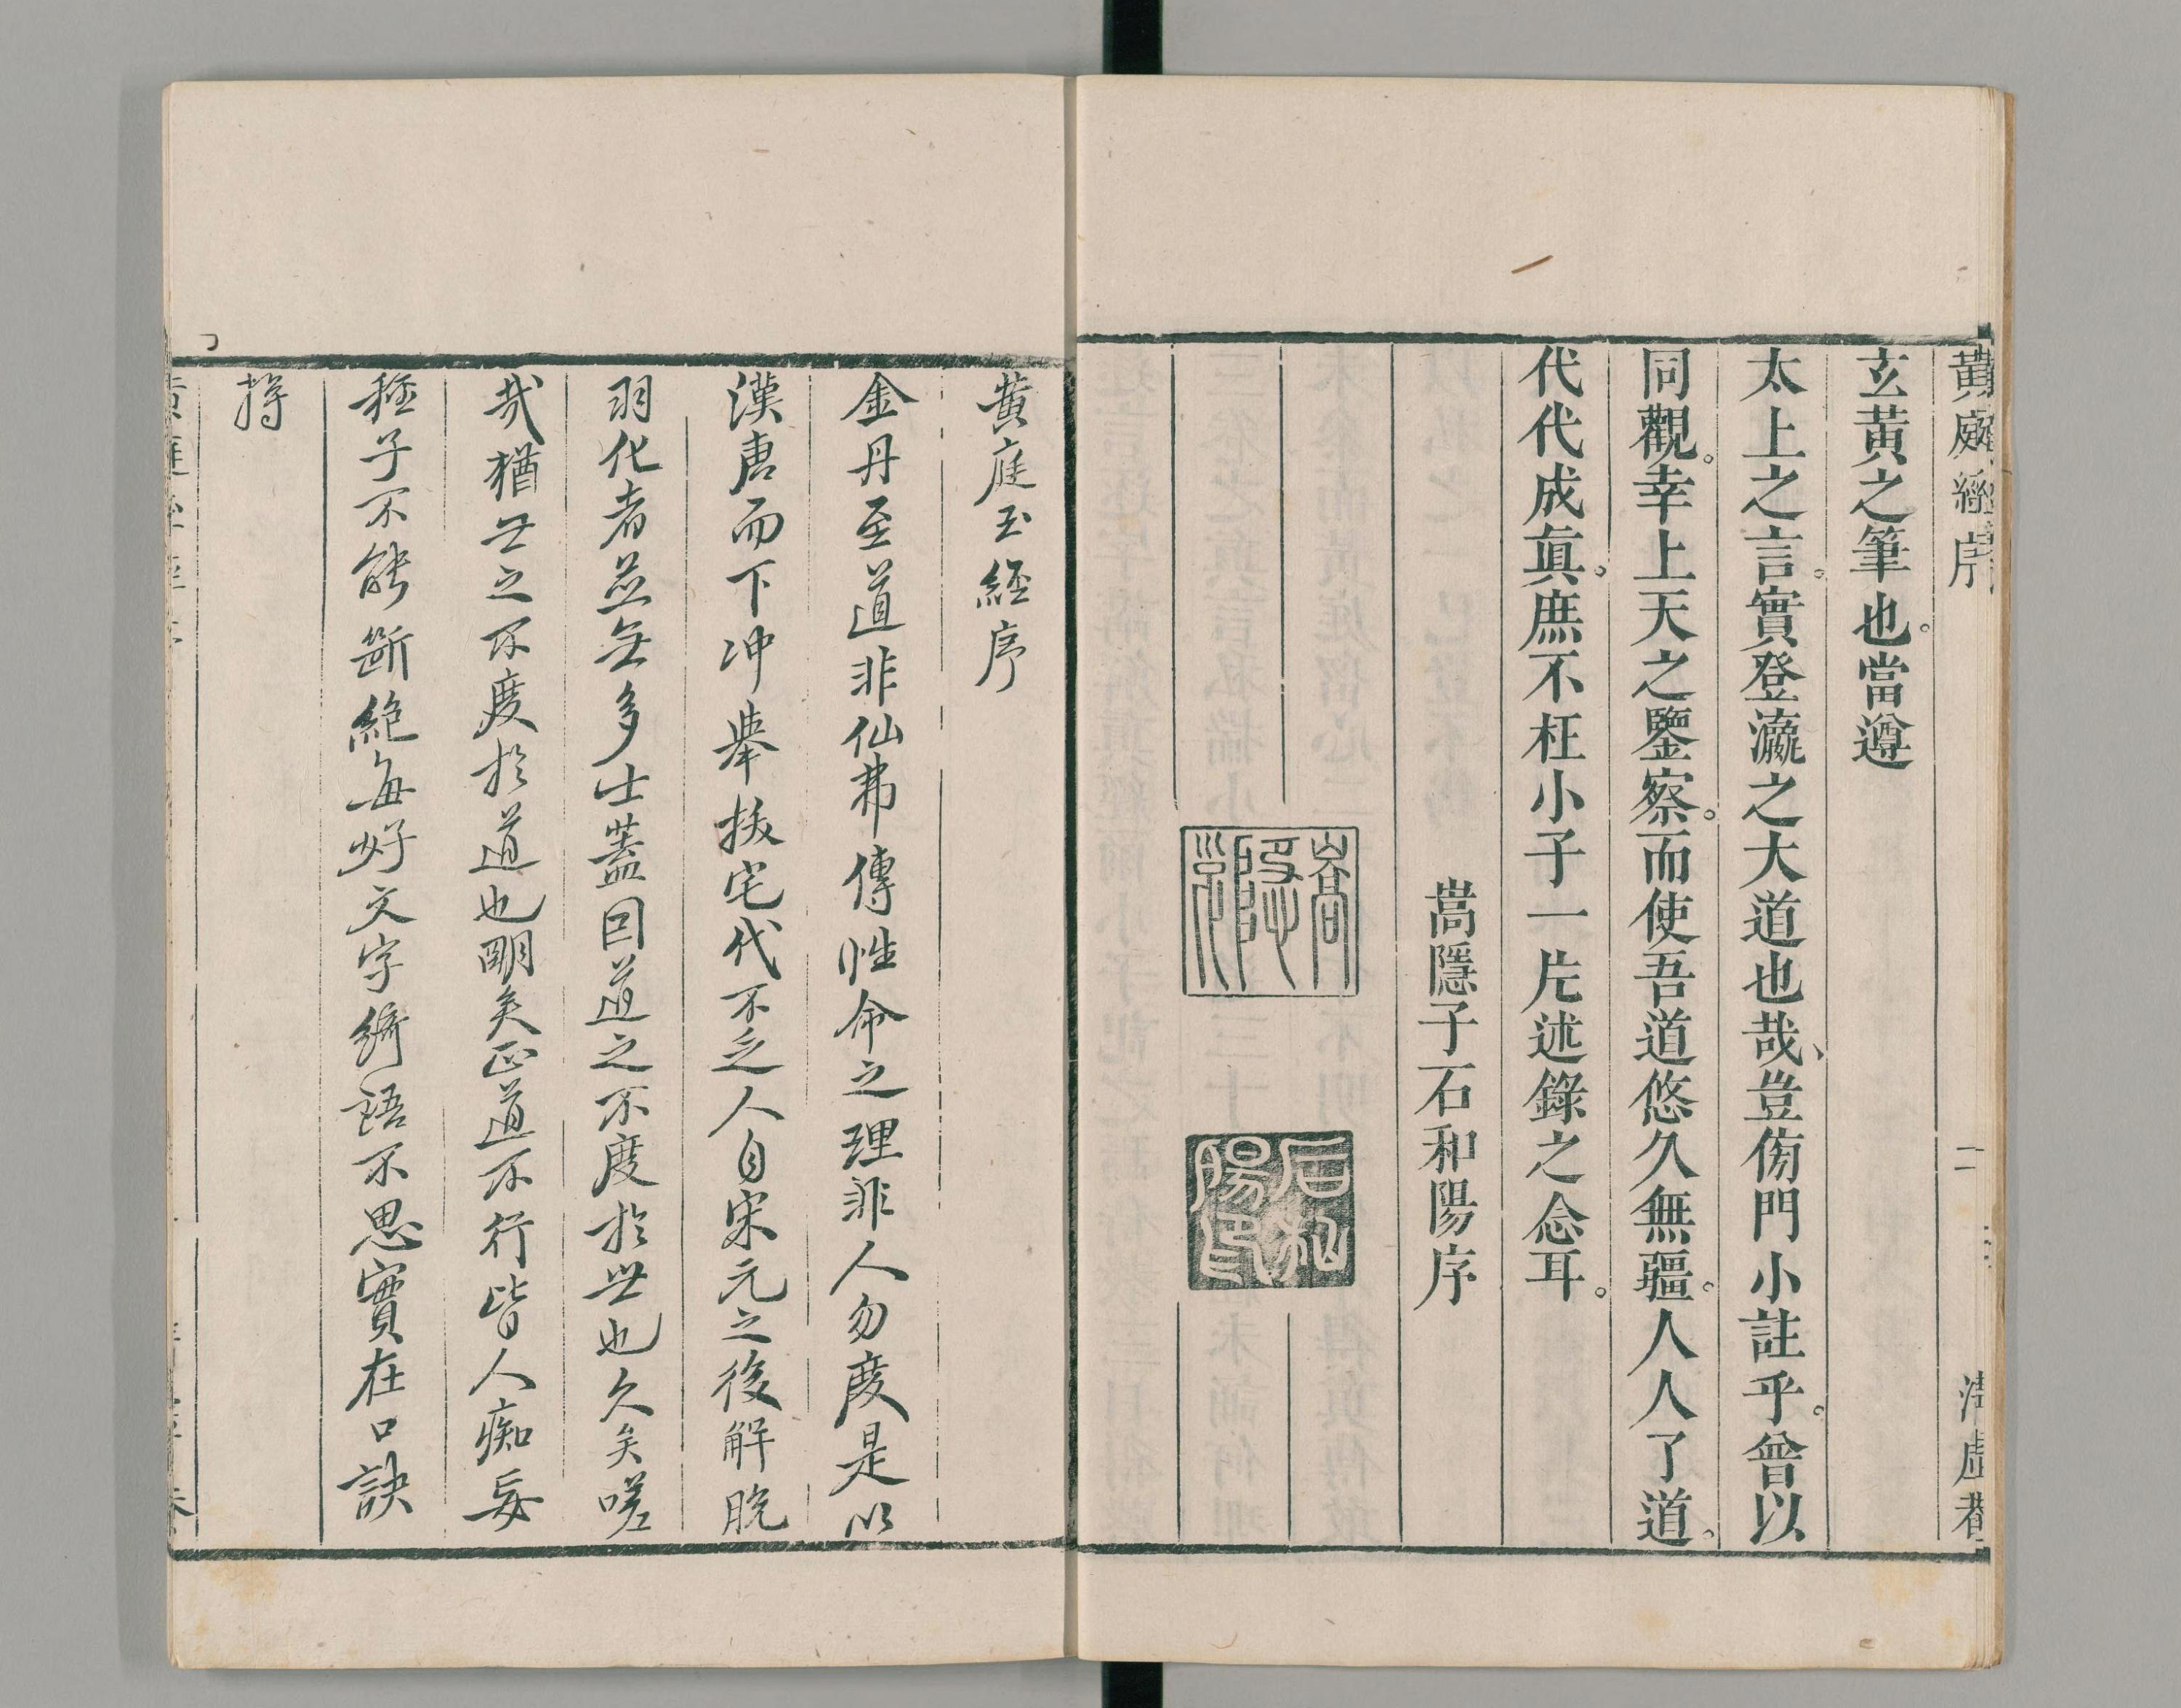 黃庭經序 二 清虛菴
玄黃之筆也。當遵
太上之言。實登瀛之大道也哉、豈傍門小註乎。曾以
同觀。幸上天之鑒察。而使吾道悠久無疆。人人了道。
代代成眞。庶不枉小子一片述錄之念耳。
嵩隱子石和陽序
嵩隱
石和陽印
黃庭玉經序
金丹至道非仙弗傳性命之理非人勿度是以
漢唐而下冲舉拔宅代不乏人自宋元之後解脫
羽化者並無多士蓋因道之不度於世也久矣嗟
哉猶世之不度於道也明矣正道不行皆人痴妄
種子不能斷絕每好文字綺語不思實在口訣
將